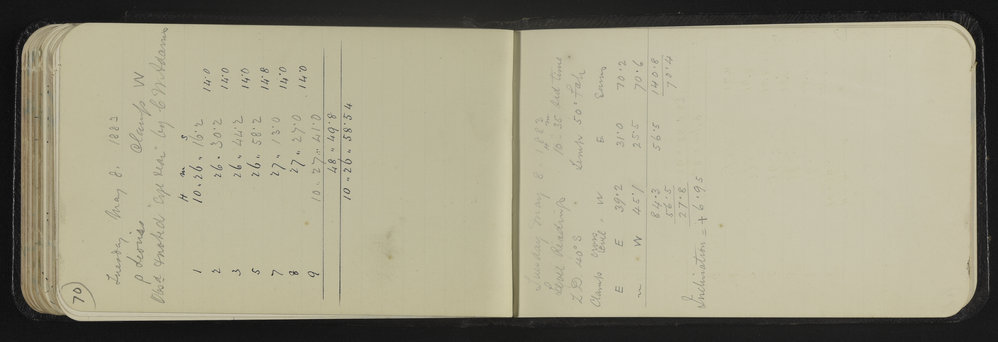 70
Tuesday May 8. 1883
ρ Leonis Clamp W
Obsd & noted "eye & ear" by C W Adams
H m s
1 10 " 26 " 16.2 14.0
2 26 " 30.2 14.0
3 26 " 44.2 14.0
5 26 " 58.2 14.8
7 27 " 13.0 14.0
8 27 " 27.0 14.0
9 10 " 27 " 41.0
48 " 49.8
10 " 26 " 58.54
Tuesday May 8. 1883
Level Readings 10h 35m Sid time
Z D 40° S. 50° Fah.
Clamp W E Sums
E E 39.2 31.0 70.2
" W 45.1 25.5 70.6
84.3 56.5 140.8
56.5 70.4
27.8
Inclination = + 6.95